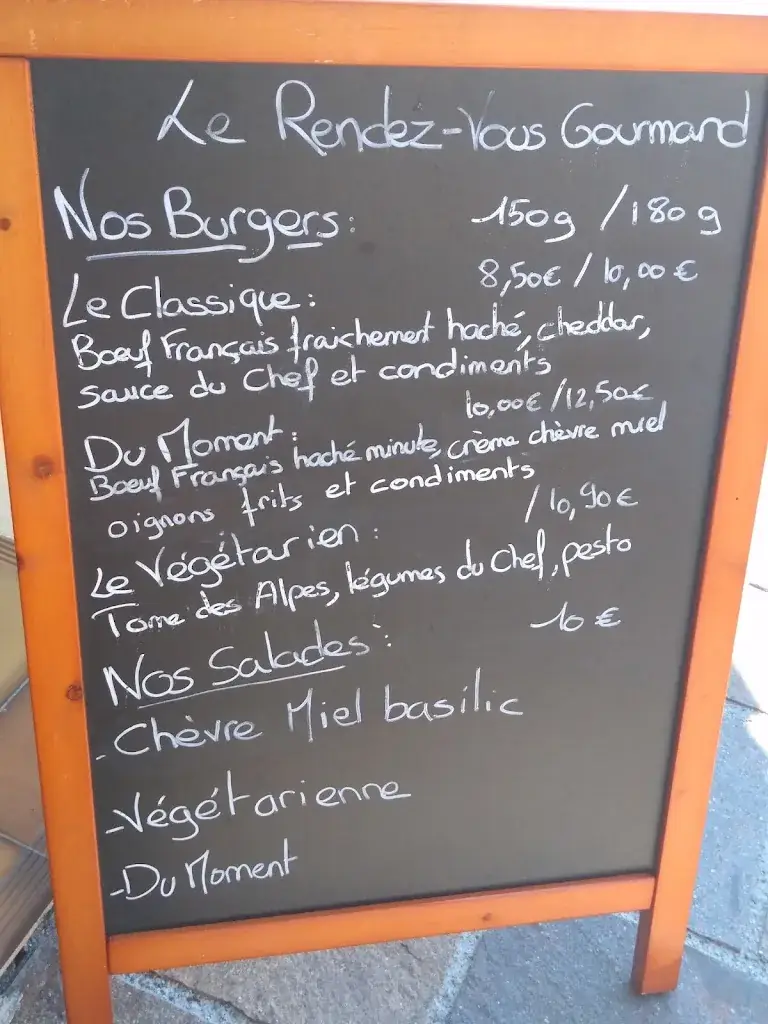 Le Rendez-Vous Gourmand
Nos Burgers: 150g / 180 g
8,50€ / 10,00 €
Le Classique:
Bœuf Français fraichement haché, cheddar,
sauce du Chef et condiments
10,00€ / 12,50€
Du Moment:
Bœuf Français haché minute, crème chèvre miel
oignons frits et condiments
/ 10,90€
Le Végétarien:
Tome des Alpes, légumes du Chef, pesto
10 €
Nos Salades:
- Chèvre Miel basilic
- Végétarienne
- Du Moment